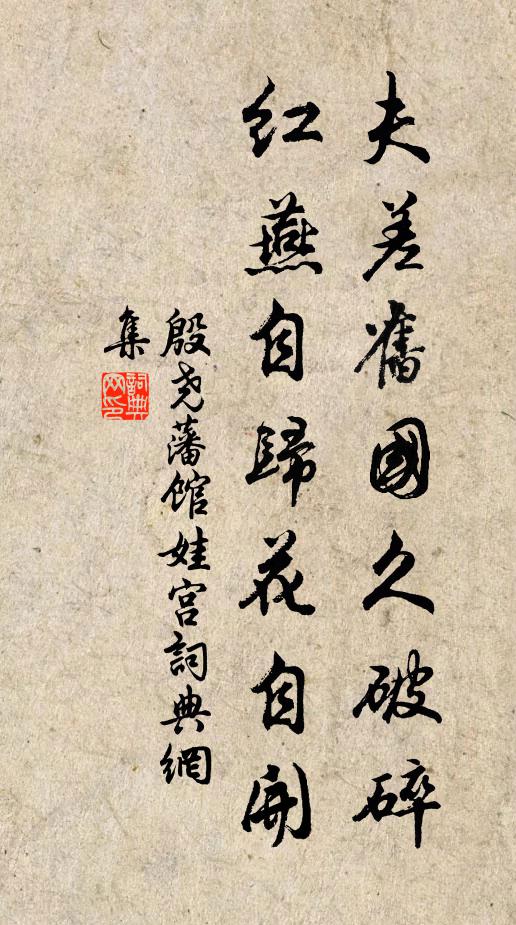 夫差舊國久破碎
紅燕自歸花自開
殷尧藩馆娃宫詞典網
集
詞典
网印